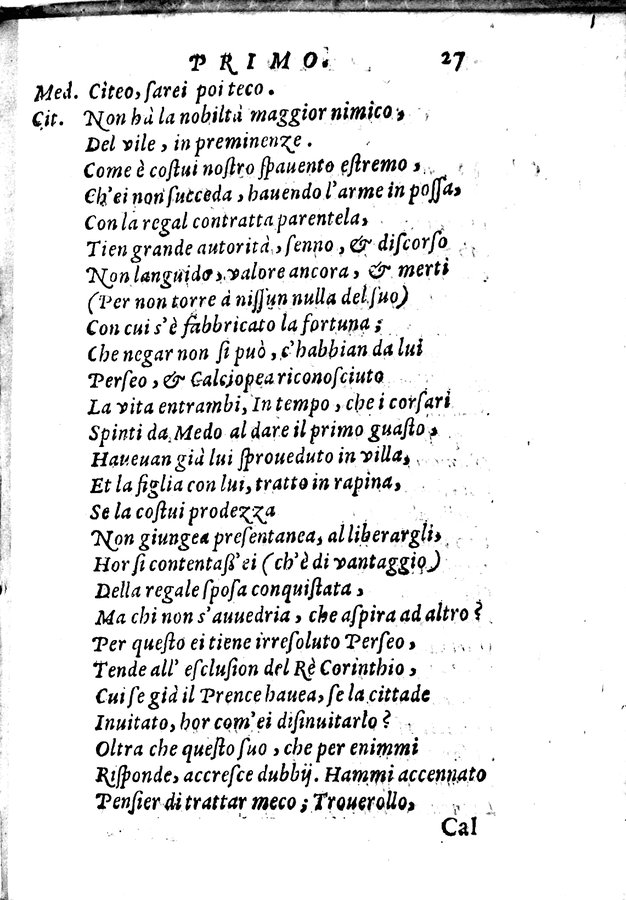 PRIMO. 27
Med. Citeo, ſarei poi teco.
Cit. Non hà la nobiltà maggior nimico,
Del vile, in preminenze.
Come è coſtui noſtro ſpauento eſtremo,
Ch'ei non ſucceda, hauendo l'arme in poſſa,
Con la regal contratta parentela,
Tien grande autorità, ſenno, & diſcorſo
Non languido, valore ancora, & merti
(Per non torre à niſſun nulla del ſuo)
Con cui s'è fabbricato la fortuna;
Che negar non ſi può, c'habbian da lui
Perſeo, & Calciopea riconoſciuto
La vita entrambi, In tempo, che i corſari
Spinti da Medo al dare il primo guaſto,
Haueuan già lui ſproueduto in villa,
Et la figlia con lui, tratto in rapina,
Se la coſtui prodezza
Non giungea preſentanea, al liberargli,
Hor ſi contentaſſ'ei (ch'è di vantaggio)
Della regale ſpoſa conquiſtata,
Ma chi non s'auuedria, che aſpira ad altro?
Per queſto ei tiene irreſoluto Perſeo,
Tende all' eſcluſion del Rè Corinthio,
Cui ſe già il Prence hauea, ſe la cittade
Inuitato, hor com'ei diſinuitarlo?
Oltra che queſto ſuo, che per enimmi
Riſponde, accreſce dubbij. Hammi accennato
Penſier di trattar meco; Trouerollo,
Cal